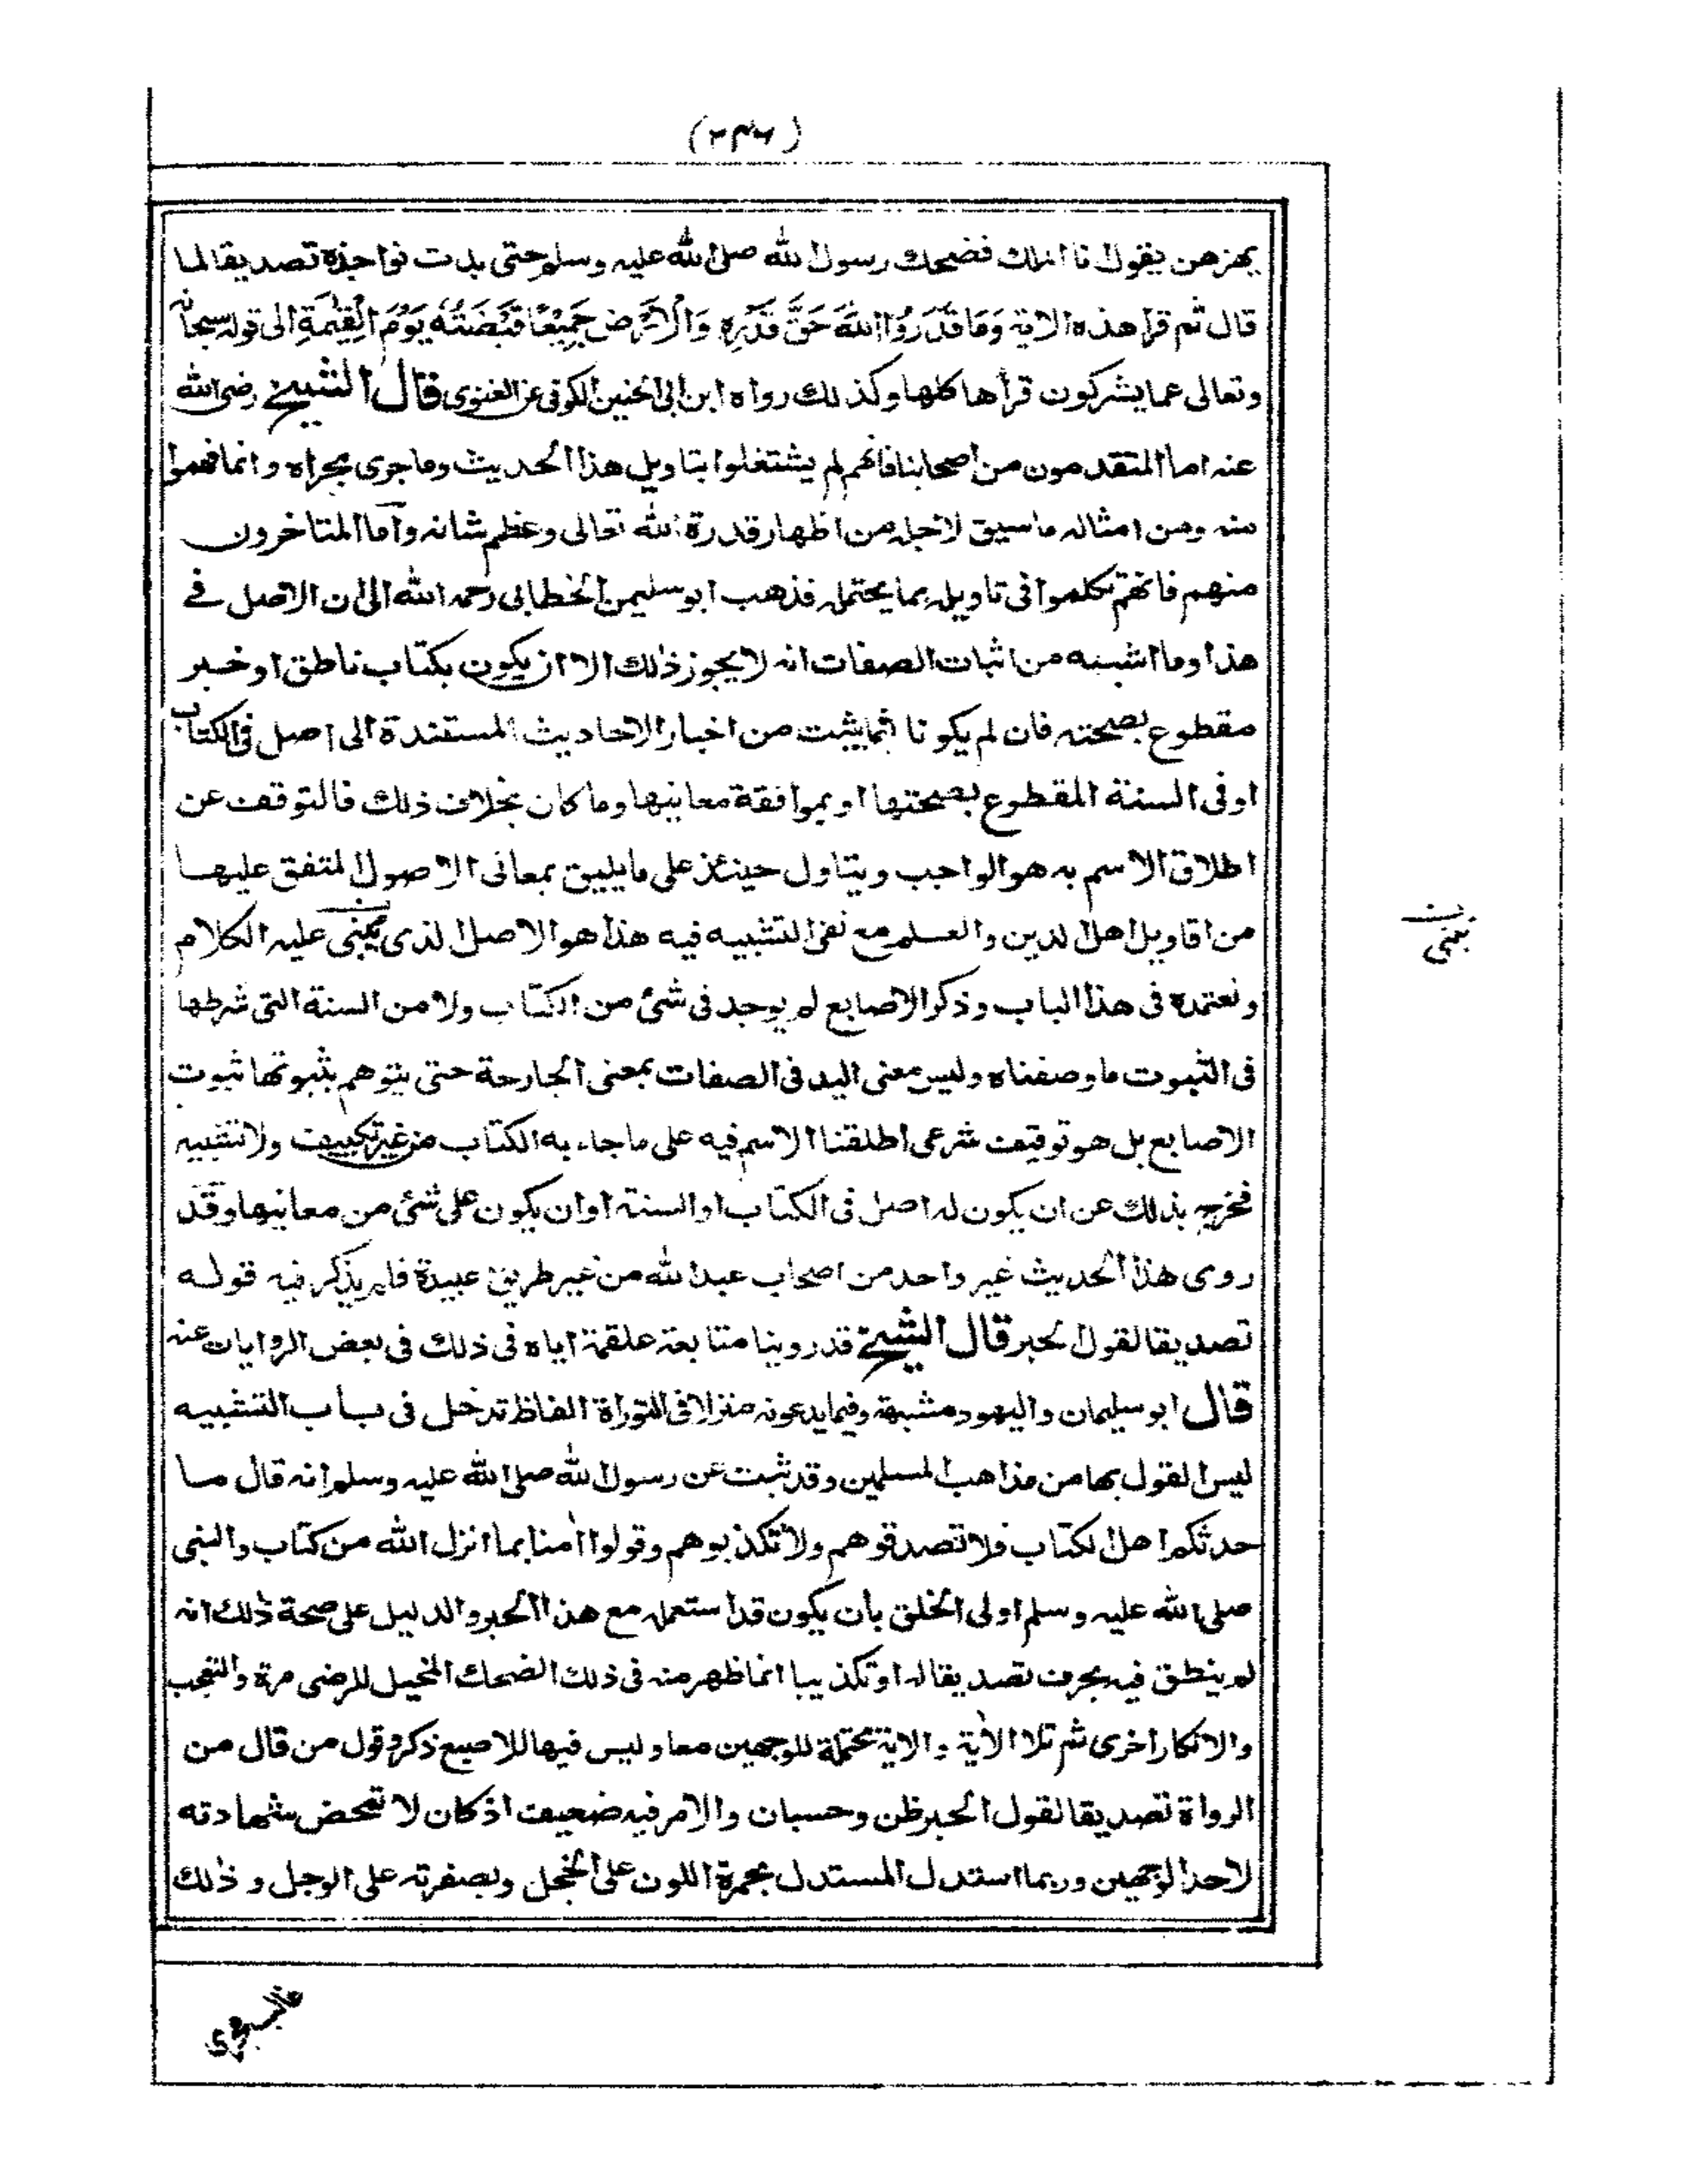 (٢٤٦)
يهزهن يقول انا الملك فضحك رسول الله صلى الله عليه وسلم حتى بدت نواجذه تصديقا لما
قال ثم قرأ هذه الاية وَمَا قَدَرُوا اللهَ حَقَّ قَدْرِهِ وَالْاَرْضُ جَمِيْعًا قَبْضَتُهُ يَوْمَ الْقِيٰمَةِ الى قوله سبحانه
وتعالى عما يشركون قرأها كلها وكذلك رواه ابن ابى الحنين الكوفى عن الغنوى قال الشيخ رضى الله
عنه اما المتقدمون من اصحابنا فانهم لم يشتغلوا بتاويل هذا الحديث وما جرى مجراه وانما فهموا
منه ومن امثاله ما سيق لاجله من اظهار قدرة الله تعالى وعظم شانه وأما المتاخرون
منهم فانهم تكلموا فى تاويله بما يحتمله فذهب ابو سليمن الخطابى رحمه الله الى ان الاصل فى
هذا وما اشبهه من اثبات الصفات انه لا يجوز ذلك الا ان يكون بكتاب ناطق او خبر
مقطوع بصحته فان لم يكونا فبما يثبت من اخبار الاحاديث المستندة الى اصل فى الكتاب
او فى السنة المقطوع بصحتها او بموافقة معانيها وما كان بخلاف ذلك فالتوقف عن
اطلاق الاسم به هو الواجب ويتاول حينئذ على ما يليق بمعانى الاصول المتفق عليها
من اقاويل اهل الدين والعلم مع نفى التشبيه فيه هذا هو الاصل الذى يبنى عليه الكلام
ونعتمده فى هذا الباب وذكر الاصابع لم يوجد فى شئ من الكتاب ولا من السنة التى شرطها
فى الثبوت ما وصفناه وليس معنى اليد فى الصفات بمعنى الجارحة حتى يتوهم بثبوتها ثبوت
الاصابع بل هو توقيف شرعى اطلقنا الاسم فيه على ما جاء به الكتاب من غير تكييف ولا تشبيه
فخرج بذلك عن ان يكون له اصل فى الكتاب او السنة او ان يكون على شئ من معانيها وقد
روى هذا الحديث غير واحد من اصحاب عبد الله من غير طريق عبيدة فلم يذكر فيه قوله
تصديقا لقول الحبر قال الشيخ قد روينا متابعة علقمة اياه فى ذلك فى بعض الروايات عنه
قال ابو سليمان واليهود مشبهة وفيما يدعونه منزلا فى التوراة الفاظ تدخل فى باب التشبيه
ليس القول بها من مذاهب المسلمين وقد ثبت عن رسول الله صلى الله عليه وسلم انه قال ما
حدثكم اهل الكتاب فلا تصدقوهم ولا تكذبوهم وقولوا اٰمنا بما انزل الله من كتاب والنبى
صلى الله عليه وسلم اولى الخلق بان يكون قد استعمله مع هذا الحبر والدليل على صحة ذلك انه
لم ينطق فيه بحرف تصديقا له او تكذيبا انما ظهر منه فى ذلك الضحك المخيل للرضى مرة والتعجب
والانكار اخرى ثم تلا الاٰية والاية محتملة للوجهين معا وليس فيها للاصبع ذكر وقول من قال من
الرواة تصديقا لقول الحبر ظن وحسبان والامر فيه ضعيف اذ كان لا تمحض شهادته
لاحد الوجهين وربما استدل المستدل بحمرة اللون على الخجل وبصفرته على الوجل وذلك